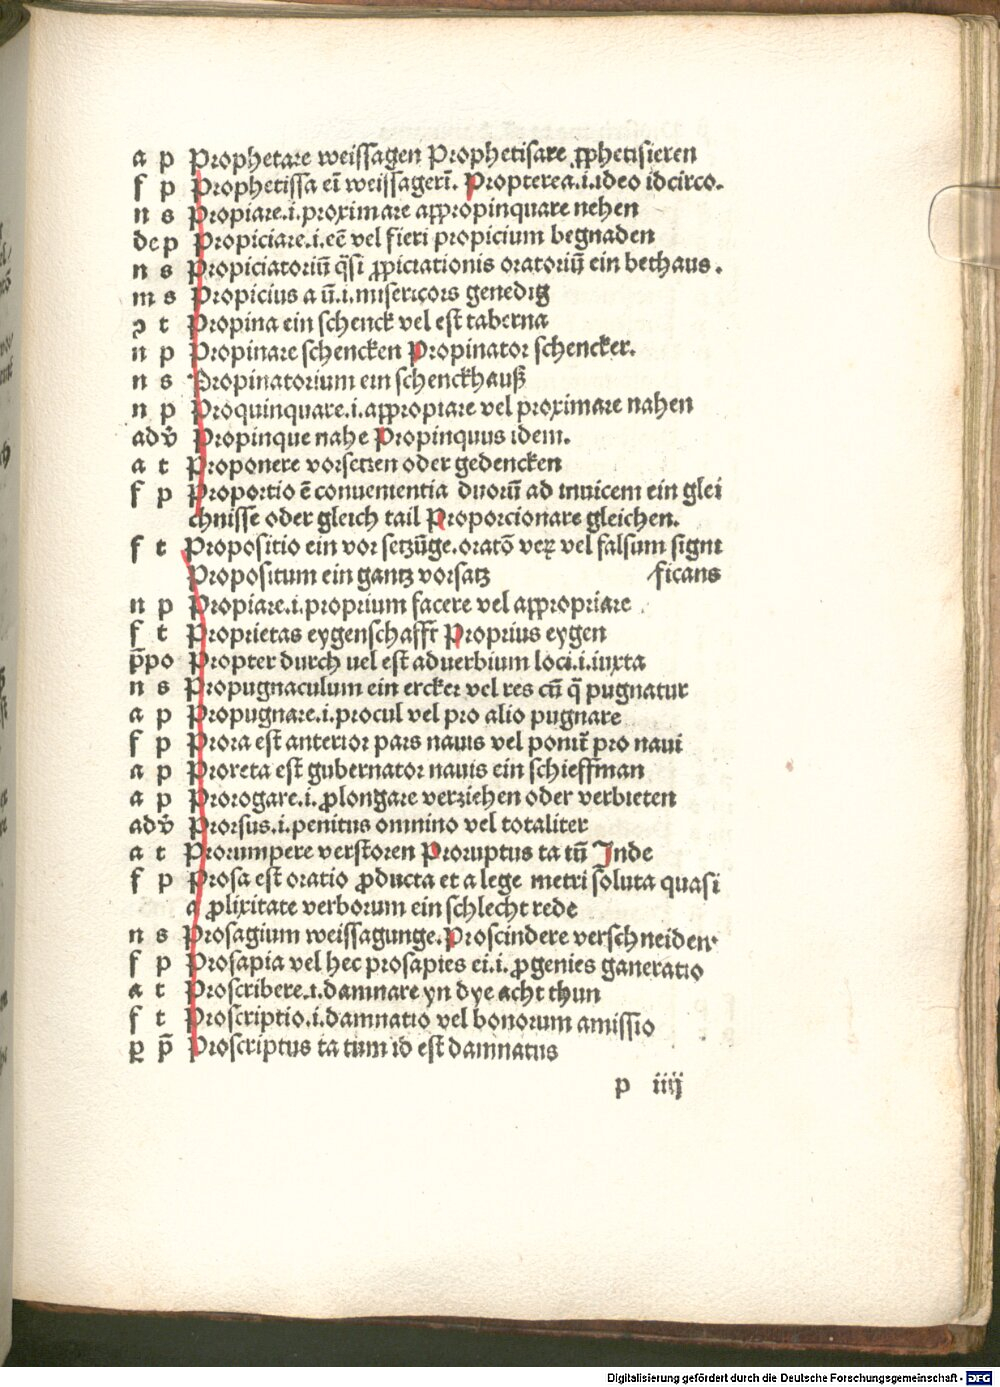 a p Prophetare weissagen Prophetisare ꝓphetisieren
f p Prophetissa eī weissagerī. Propterea.i.ideo idcirco.
n s Propiare.i.proximare appropinquare nehen
de p Propiciare.i.eē vel fieri propicium begnaden
n s Propiciatoriū q̄si ꝓpiciationis oratoriū ein bethaus.
m s Propicius a ū.i.misericors genedig
ↄ t Propina ein schenck vel est taberna
n p Propinare schencken Propinator schencker.
n s Propinatorium ein schenckhauß
n p Proquinquare.i.appropiare vel proximare nahen
adv̄ Propinque nahe Propinquus idem.
a t Proponere vorsetzen oder gedencken
f p Proportio ē conuenientia duorū ad inuicem ein glei
chnisse oder gleich tail Proporcionare gleichen.
f t Propositio ein vor setzūge.oratō veꝝ vel falsum signi
Propositum ein gantz vorsatz ficans
n p Propiare.i.proprium facere vel appropriare
f t Proprietas eygenschafft Proprius eygen
p̄po Propter durch uel est aduerbium loci.i.iuxta
n s Propugnaculum ein ercker vel res cū q̄ pugnatur
a p Propugnare.i.procul vel pro alio pugnare
f p Prora est anterior pars nauis vel ponit̄ pro naui
a p Proreta est gubernator nauis ein schieffman
a p Prorogare.i.ꝓlongare verziehen oder verbieten
adv̄ Prorsus.i.penitus omnino vel totaliter
a t Prorumpere verstoren Proruptus ta tū Inde
f p Prosa est oratio ꝓducta et a lege metri soluta quasi
a ꝓlixitate verborum ein schlecht rede
n s Prosagium weissagunge.Proscindere verschneiden
f p Prosapia vel hec prosapies ei.i.ꝓgenies ganeratio
a t Proscribere.i.damnare yn dye acht thun
f t Proscriptio.i.damnatio vel bonorum amissio
ꝑ p̄ Proscriptus ta tum id est damnatus
p iiij
Digitalisierung gefördert durch die Deutsche Forschungsgemeinschaft - DFG